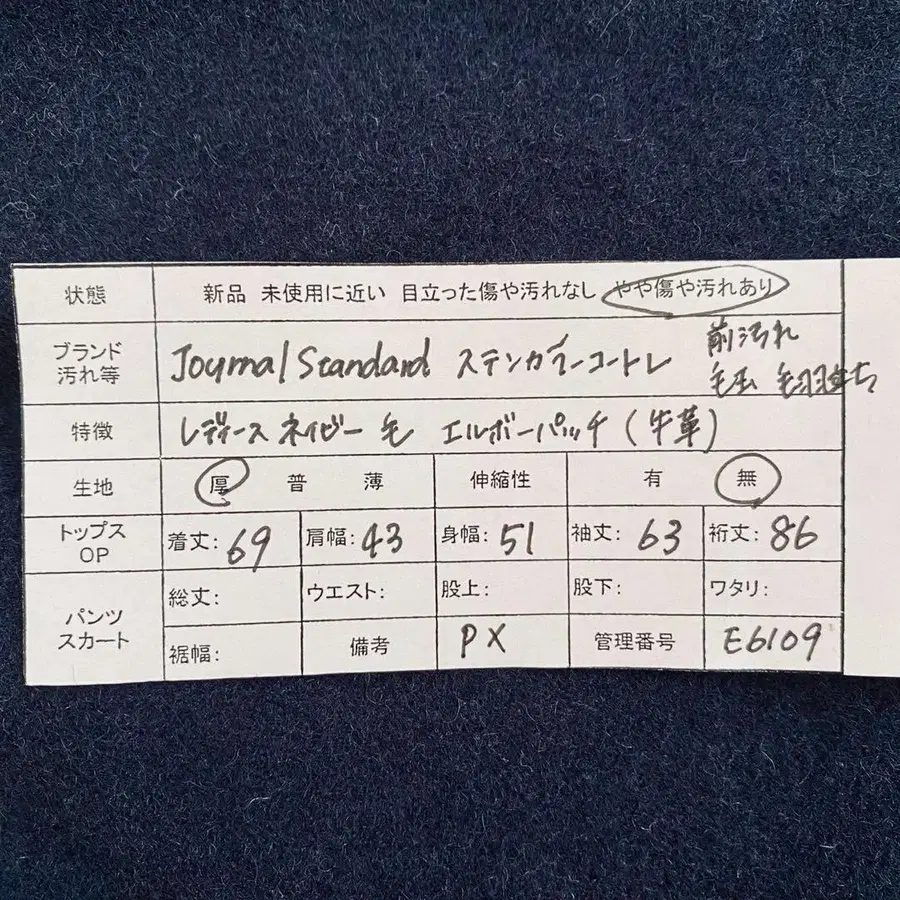 状態 新品 未使用に近い 目立った傷や汚れなし やや傷や汚れあり
ブランド 汚れ等 Journal Standard ステンカラーコート L 前汚れ
毛玉 毛羽立ち
特徴 レディース ネイビー 毛 エルボーパッチ (牛革)
生地 厚 普 薄 伸縮性 有 無
トップス OP 着丈: 69 肩幅: 43 身幅: 51 袖丈: 63 裄丈: 86
パンツ スカート 総丈: ウエスト: 股上: 股下: ワタリ:
裾幅: 備考 PX 管理番号 E6109